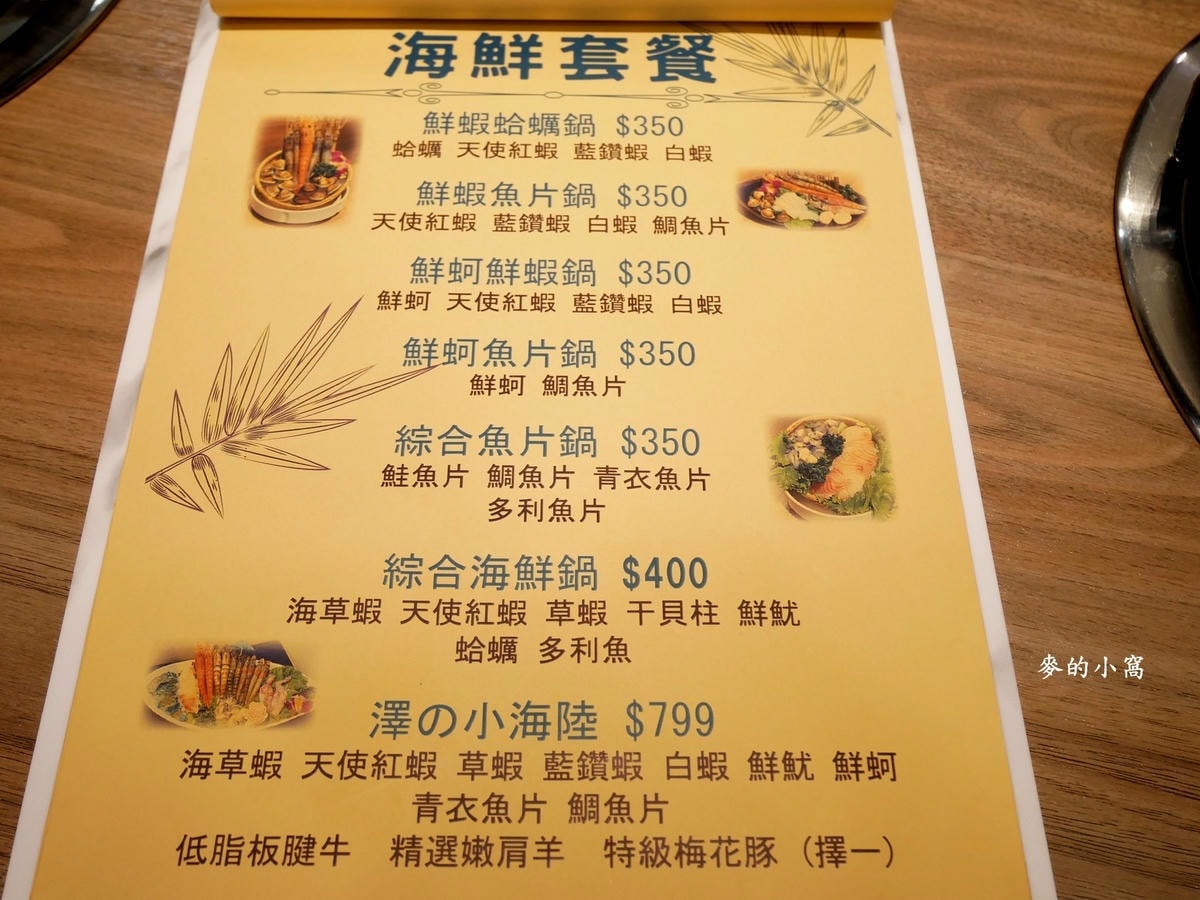 海鮮套餐
鮮蝦蛤蠣鍋 $350
蛤蠣 天使紅蝦 藍鑽蝦 白蝦
鮮蝦魚片鍋 $350
天使紅蝦 藍鑽蝦 白蝦 鯛魚片
鮮蚵鮮蝦鍋 $350
鮮蚵 天使紅蝦 藍鑽蝦 白蝦
鮮蚵魚片鍋 $350
鮮蚵 鯛魚片
綜合魚片鍋 $350
鮭魚片 鯛魚片 青衣魚片
多利魚片
綜合海鮮鍋 $400
海草蝦 天使紅蝦 草蝦 干貝柱 鮮魷
蛤蠣 多利魚
澤の小海陸 $799
海草蝦 天使紅蝦 草蝦 藍鑽蝦 白蝦 鮮魷 鮮蚵
青衣魚片 鯛魚片
低脂板腱牛 精選嫩肩羊 特級梅花豚（擇一）
麥的小窩